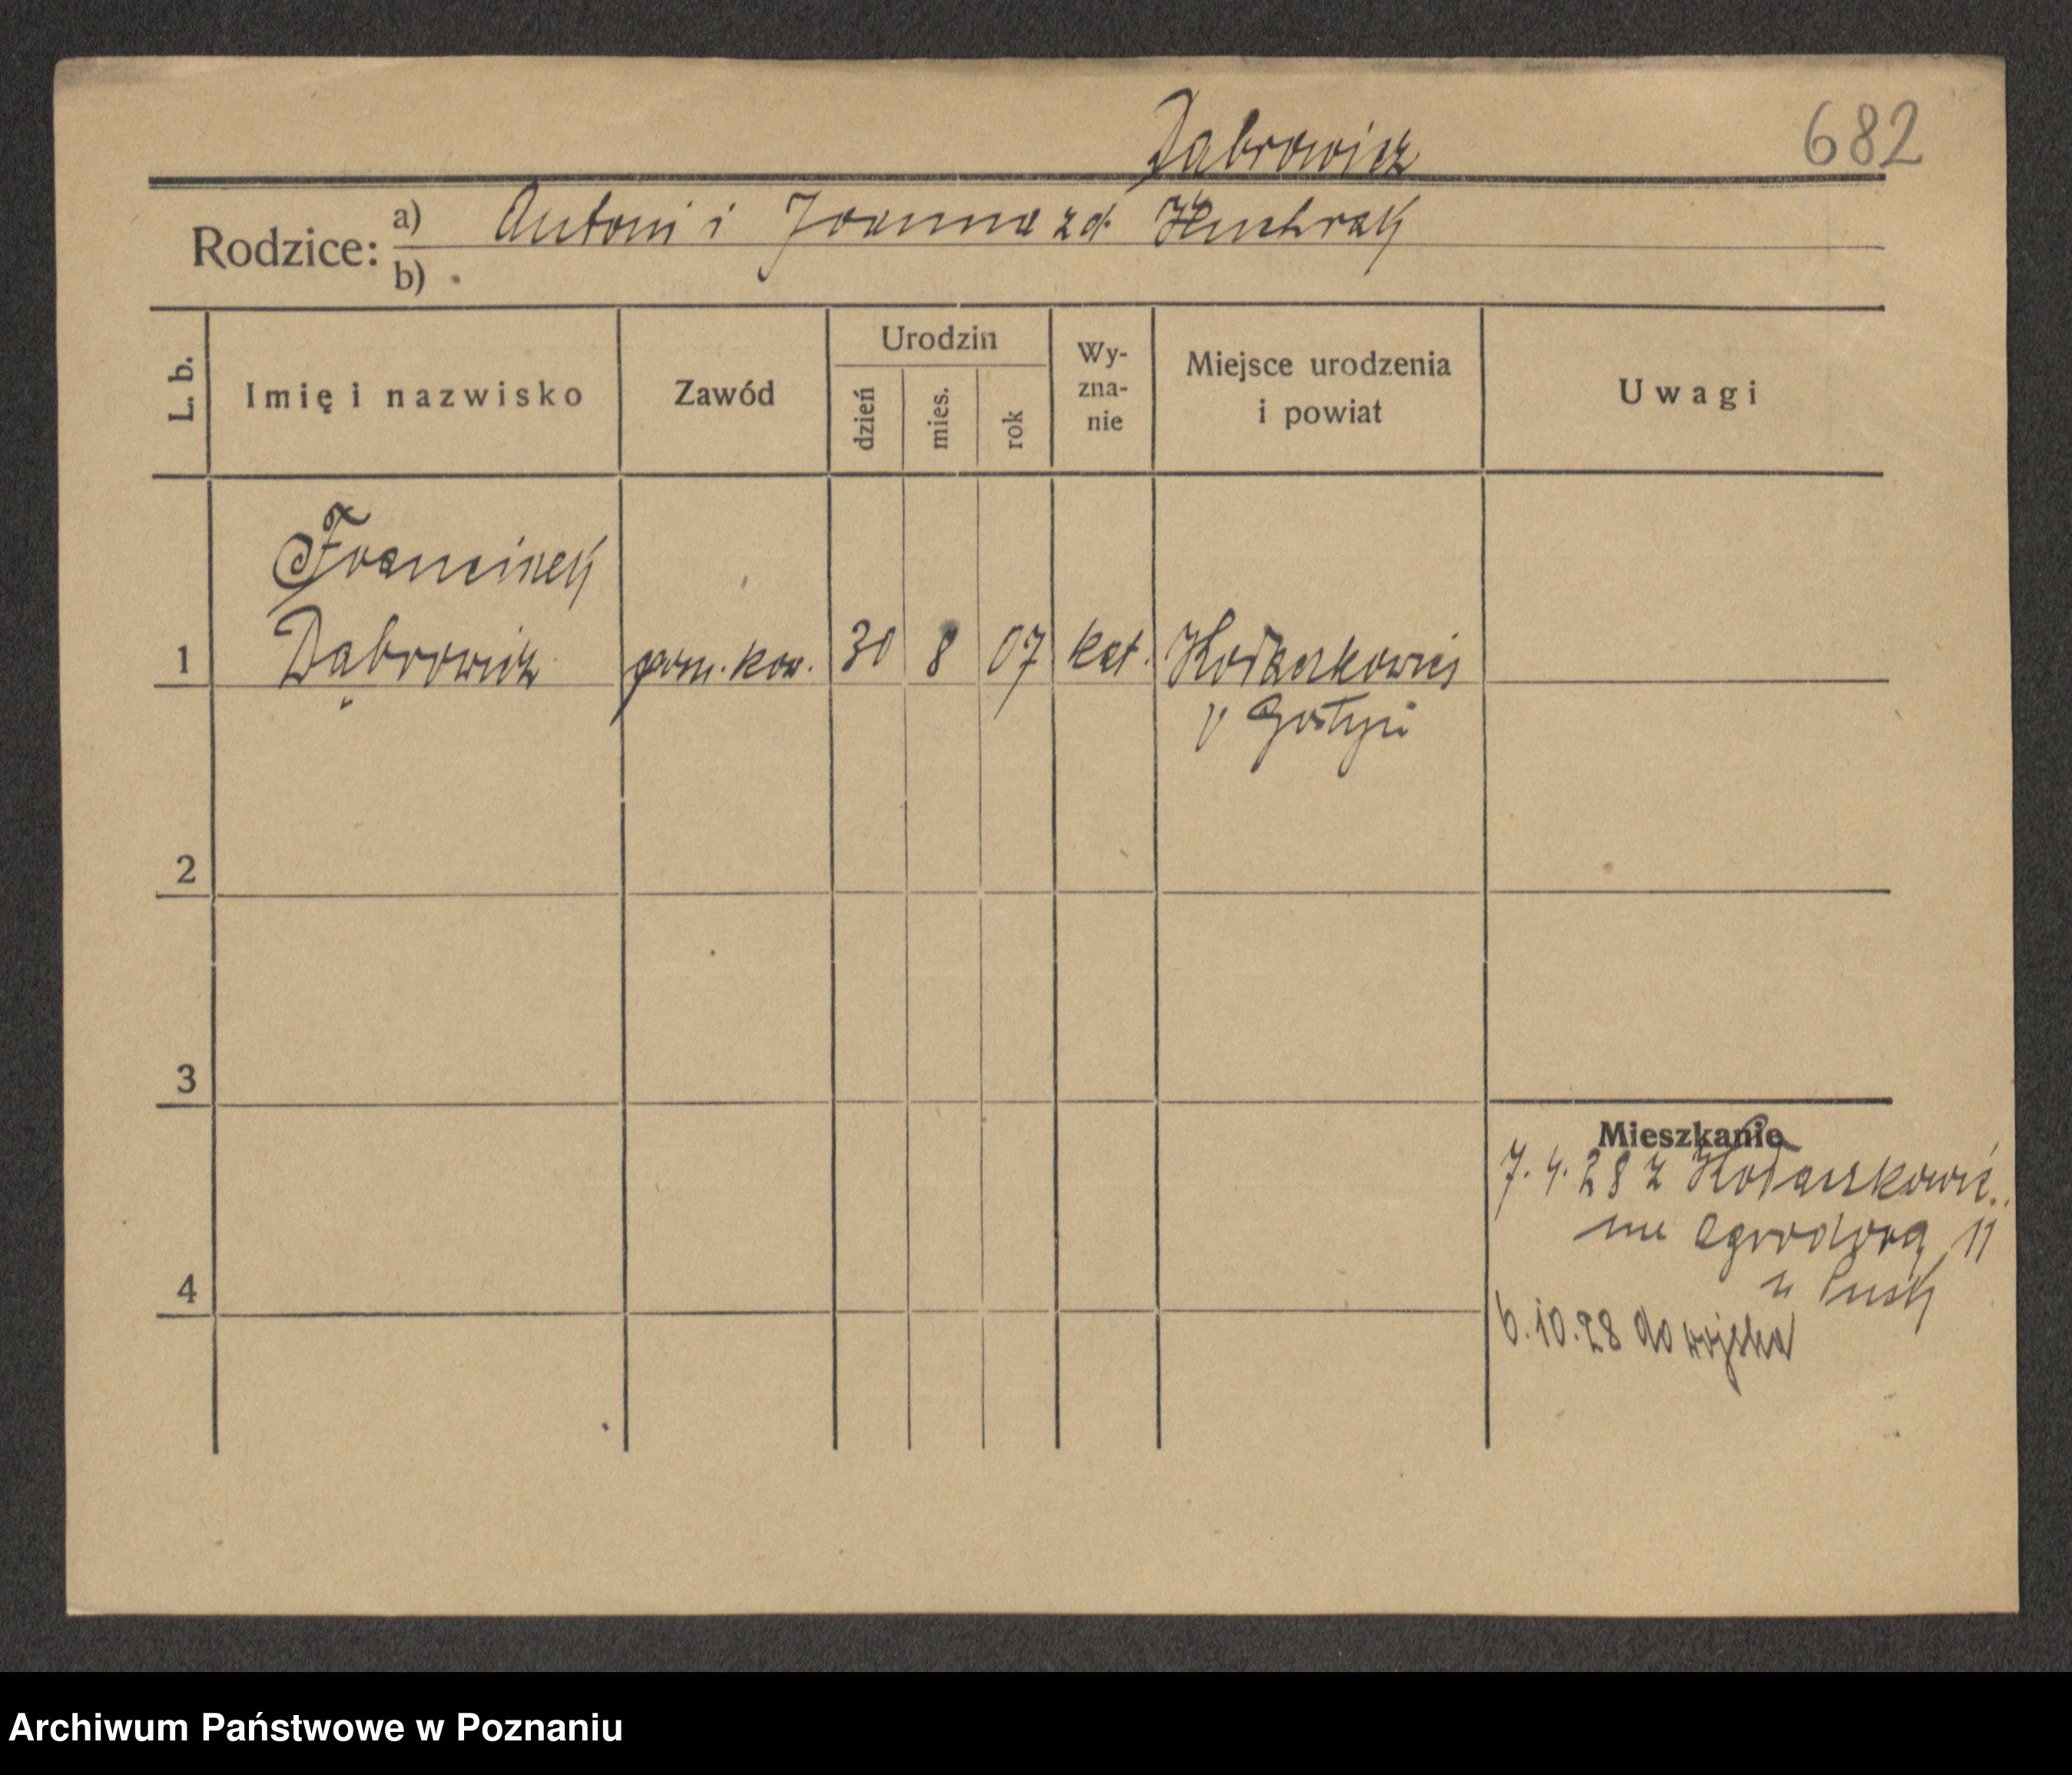 Dąbrowicz
682
Rodzice: a) Antoni i Joanna zd.
b)
L. b. Imię i nazwisko Zawód Urodzin dzień mies. rok Wy-zna-nie Miejsce urodzenia i powiat Uwagi
Franciszek
1 Dąbrowicz pom. kow. 30 8 07 kat. Kołaczkowice
p Gostyń
2
3
Mieszkanie
7. 4. 28 z Kołaczkowic.
na Ogrodową 11
4
u
6.10.28 do wojska
Archiwum Państwowe w Poznaniu